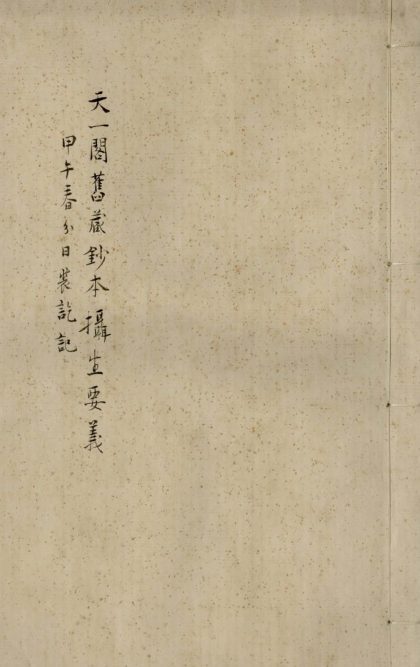 天一閣舊藏鈔本攝生要義
甲午春分日裝訖記